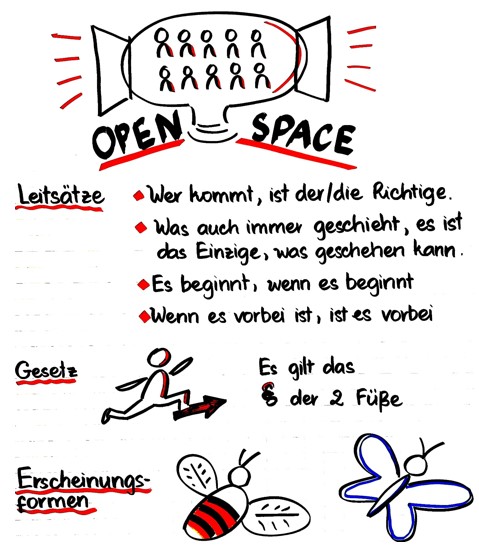 OPEN SPACE
Leitsätze
Wer kommt, ist der/die Richtige.
Was auch immer geschieht, es ist
das Einzige, was geschehen kann.
Es beginnt, wenn es beginnt
Wenn es vorbei ist, ist es vorbei
Gesetz
Es gilt das
§ der 2 Füße
Erscheinungs-
formen